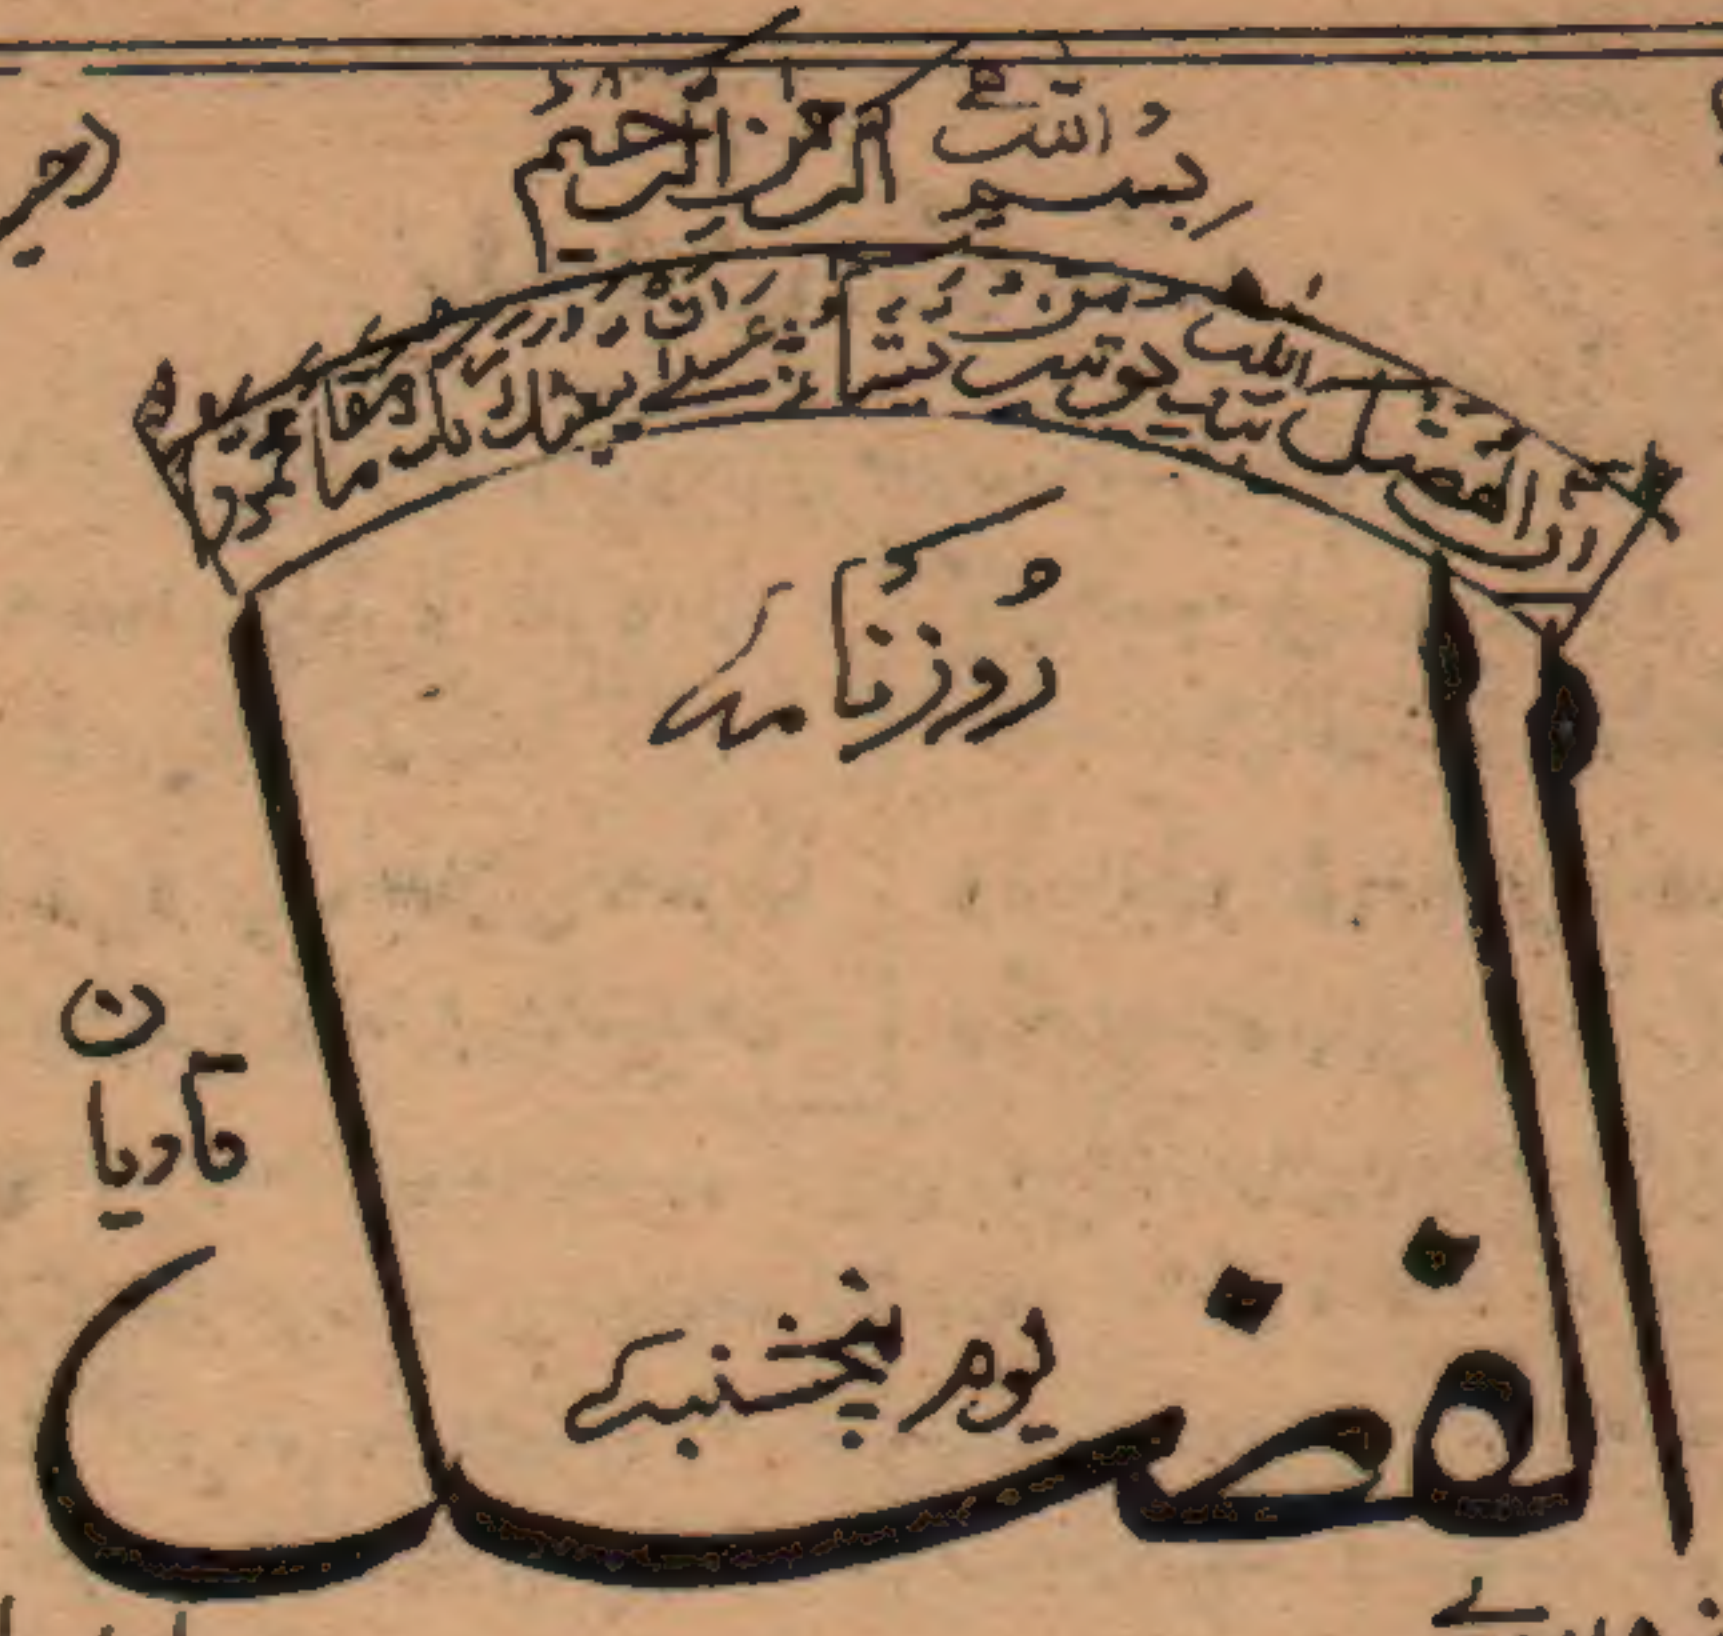 بسم اللہ الرحمن الرحیم
ان الفضل بید اللہ یوتیہ من یشاء
عسیٰ ان یبعثک ربک مقاما محمودا
روزنامہ
الفضل
قادیان
یوم پنجشنبہ